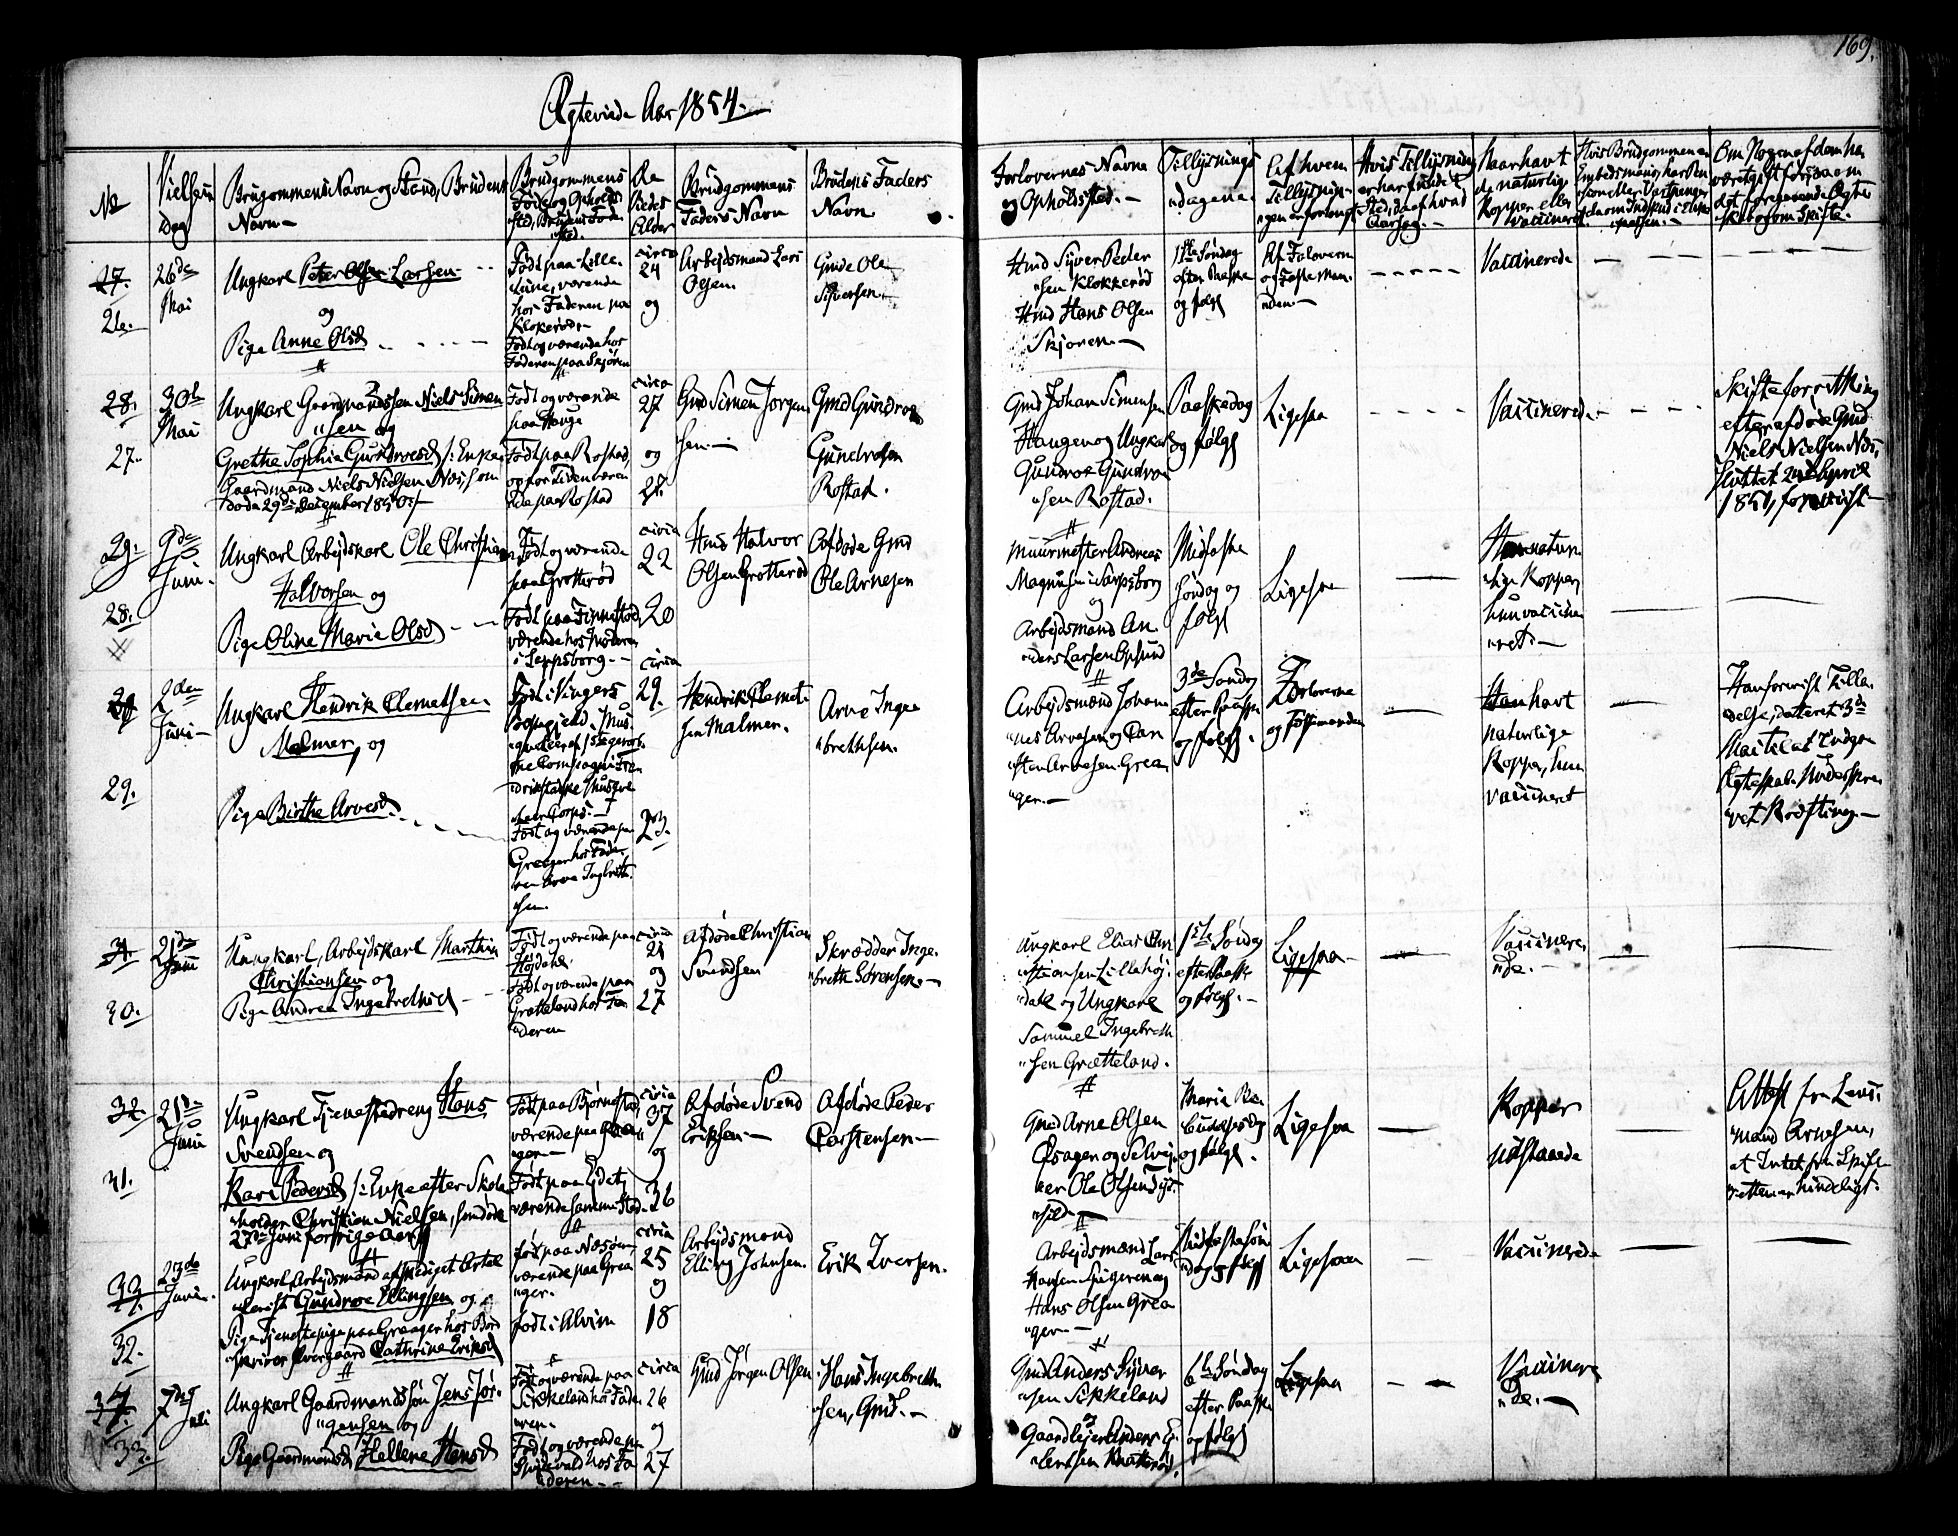 169.
Ægteviede Aar 1854.
No
Vielsens
Dag
Brudgommens Navn og Stand, Brudens
Navn
Brudgommens
Føde og Opholds
sted, Brudens Føde
sted.
Begges
Alder
Brudgommens
Faders Navn
Brudens Faders
Navn
Forlovernes Navne
og Opholdssted.
Tillysnings
dagene.
Af hvem
Tillysnin-
gen er forlangt
Hvis Tillysning
er
Sted, da af hvad
Aarsag.
Naar havt
de naturlige
Kopper eller
Vaccineret
Hvis Brudgommen er
Om Nogen af dem ha
været gift forud om
det foregaaende Ægte
skab og om Skifte.
27.
26.
26de
Mai
Ungkarl Peter Olsen Larsen
og
Pige Anne Olsd
Født paa Lille
værende
hos Faderen paa
Klokerød
Født og værende hos
Faderen paa Skjøren
circa
24
og
Arbejdsmand Lars
Olsen.
Gmd Ole
Syversen.
Hmd Syver Peder
sen Klokkerød
Hmd Hans Olsen
Skjøren.
1ste Søndag
efter Paaske
og følg
Af Forlovern
og Fæsteman
den.
Vaccinerede
28.
27.
30te
Mai
Ungkarl Gaardmandssøn Niels Simen
sen og
Grethe Sophie Gundroesd /: Enke
Gaardmand Niels Nielsen Næs, som
døde 29de December 1850 :/
Født og værende
paa Hauge
Født paa Rostad,
og for Tiden væren
de paa Rostad
circa
27
og
28.
Gmd Simen Jørgen
sen.
Gmd Gundroe
Gundrosen
Rostad.
Gmd Johan Simensen
Haugen og Ungkarl
Gundroe Gundroe
sen Rostad.
Paaskedag
og følg
Ligesaa
Vaccinerede
Skifteforretning
efter afdøde Gmd
Niels Nielsen Næs,
sluttet 2den April
1851, forevist
29.
28.
9de
Juni.
Ungkarl Arbejdskarl Ole Christian
Halvorsen og
Pige Oline Marie Olsd
Født og værende
paa Grotterød
Født paa Finnestad,
værende hos Moderen
i Sarpsborg.
circa
22
20
Hmd Halvor
Olsen Grotterød
Afdøde Gmd
Ole Arnesen
Muurmester Andreas
Magnusen i Sarpsborg
og
Arbejdsmand An
ders Larsen Opsund
Midfaste
Søndag og
følg
Ligesaa
Han natur
lige Kopper,
hun vaccine
ret.
30
29.
2den
Juni
Ungkarl Hendrik Clemetsen
Malmer, og
Pige Birthe Arvesd
Født i Vingers
Præstegjeld, Mus
Født og værende paa
Greager hos Fade
ren Arve Ingbreth
sen.
circa
29.
23.
Hendrik Clemet
sen Malmer.
Arve Inge
brethsen.
Arbejdsmand Johan
nes Arvesen og Car
sten Arvesen Grea
ger.
3de Søndag
efter Paaske
og følg.
Forloverne
og Fæstemanden
Han havt
naturlige
Kopper, hun
vaccineret
Han forevist Tilla
delse, dateret 3de
31.
30.
21de
Juni
Ungkarl, Arbejdskarl Marthin
Christiansen og
Pige Andrea Ingebrethsd
Født og værende paa
Højdahl
Født og værende paa
Grætteland hos Fa
deren
circa
21
og
27
Afdøde Christian
Svendsen
Skrædder Inge
breth Sørensen.
Ungkarl Elias Chri
stiansen Lillehøj
dahl og Ungkarl
Samuel Ingebreth
sen Grætteland.
1ste Søndag
efter Paaske
og følg.
Ligesaa
Vaccinere
de.
32.
31.
21de
Juni
Ungkarl Tjenestedreng Hans
Svendsen og
Kari Pedersd /: Enke efter Skole
holder Christian Nielsen, som døde
27de Juni forrige Aar :/
Født paa Bjørnestad,
værende paa Grea
ger
Født paa Eidet,
værende samme Sted
circa
37
og
36
Afdøde Svend
Eriksen
Afdøde Peder
Carstensen
Gmd Arne Olsen
og Selvej
er Ole Olsen
Maria Be
budelsesdag
og følg.
Ligesaa
Kopper
udstaaede
Attest fra Lens
mand Arnesen,
at Intet fra Skifte
retten er hinderligt.
33.
32.
23de
Juni.
Ungkarl Arbejdsmand afskediget Artil
lerist Gundroe Ellingsen og
Pige Tjenestepige paa Greager hos Bød
Overgaard Cathrine Eriksd
født paa Næsøen,
værende paa Grea
ger.
født i Alvim
circa
25
og
18
Arbejdsmand
Elling Johnsen.
Erik Iversen.
Arbejdsmand Lars
Hansen Spigeren og
Hans Olsen Grea
ger
Midfaste Søn
dag og følg
Ligesaa
Vaccinerede
34.
33.
7de
Juli
Ungkarl Gaardmandssøn Jens Jør
gensen og
Pige Gaardmandsd Hellene Hansd
Født og værende paa
Sikkeland hos Fade
ren.
Født og værende paa
hos Fa
deren
circa
26
og
27
Gmd Jørgen Olsen
Hans Ingebreth
sen, Gmd.
Gmd Anders Syver
sen Sikkeland
og
Gaardejer Anders E
6te Søndag
efter Paaske
og følg
Ligesaa
Vaccinere
de.